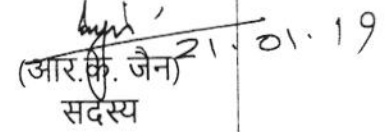 21.01.19
(आर.के. जैन)
सदस्य